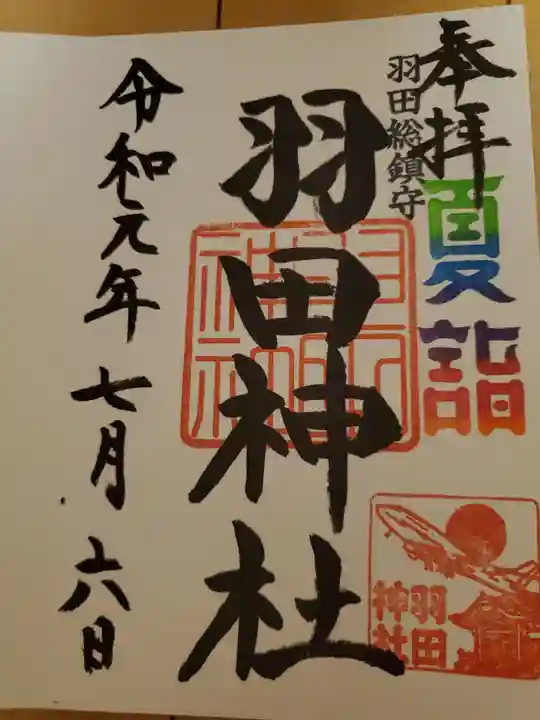 奉拝
夏詣
羽田総鎮守
羽田神社
羽田神社
羽田
神社
令和元年七月六日